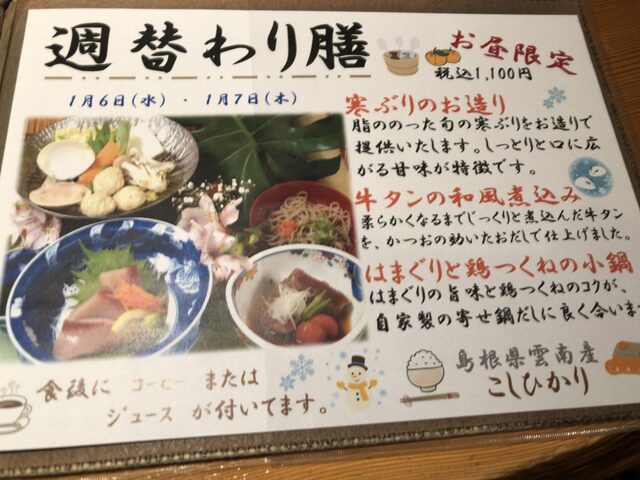 週替わり膳
お昼限定
税込1,100円
1月6日(水)・1月7日(木)
寒ぶりのお造り
脂ののった旬の寒ぶりをお造りで
提供いたします。しっとりと口に広
がる甘味が特徴です。
牛タンの和風煮込み
柔らかくなるまでじっくりと煮込んだ牛タン
を、かつおの効いたおだしで仕上げました。
はまぐりと鶏つくねの小鍋
はまぐりの旨味と鶏つくねのコクが、
自家製の寄せ鍋だしに良く合いま
島根県雲南産
こしひかり
食後に コーヒー または
ジュース が付いてます。